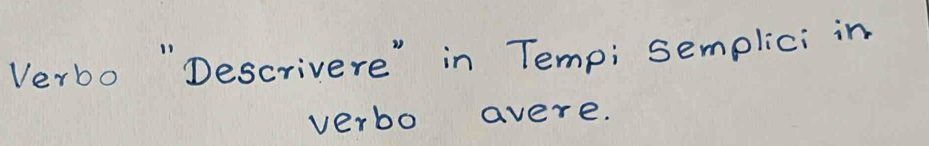 Verbo "Descrivere" in Tempi semplici in
verbo avere.